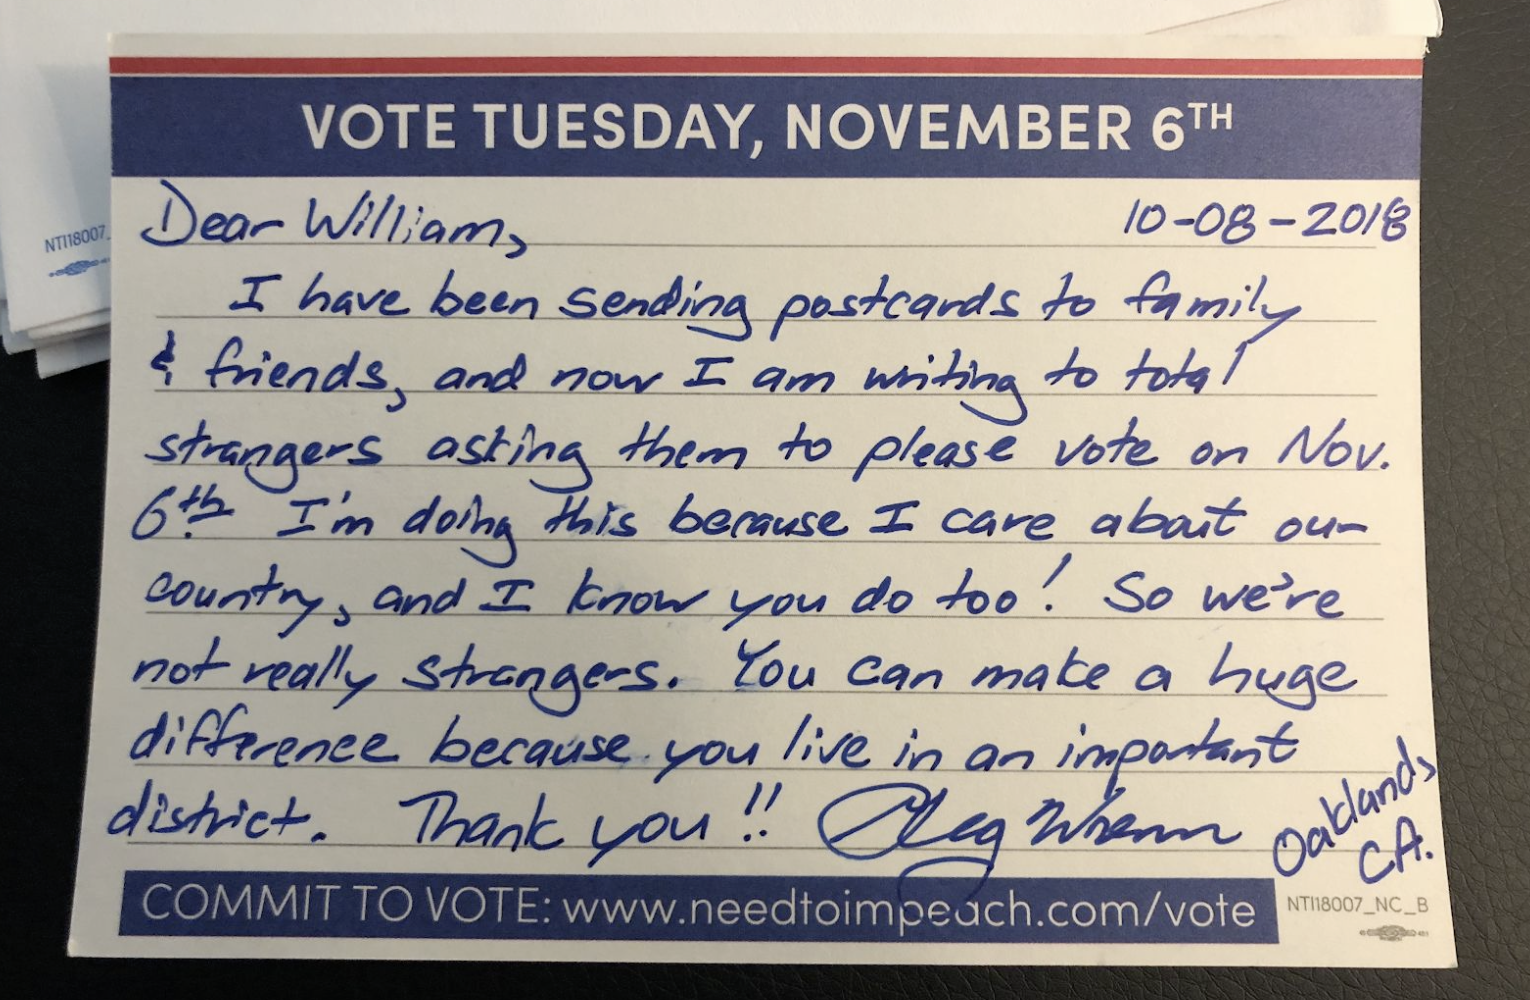 VOTE TUESDAY, NOVEMBER 6TH
Dear William, 10-08-2018
I have been sending postcards to family
& friends, and now I am writing to total
strangers asking them to please vote on Nov.
6th. I'm doing this because I care about our
country, and I know you do too! So we're
not really strangers. You can make a huge
difference because you live in an important
district. Thank you!!
Oakland,
CA.
COMMIT TO VOTE: www.needtoimpeach.com/vote
NTI18007_NC_B
NTI18007_